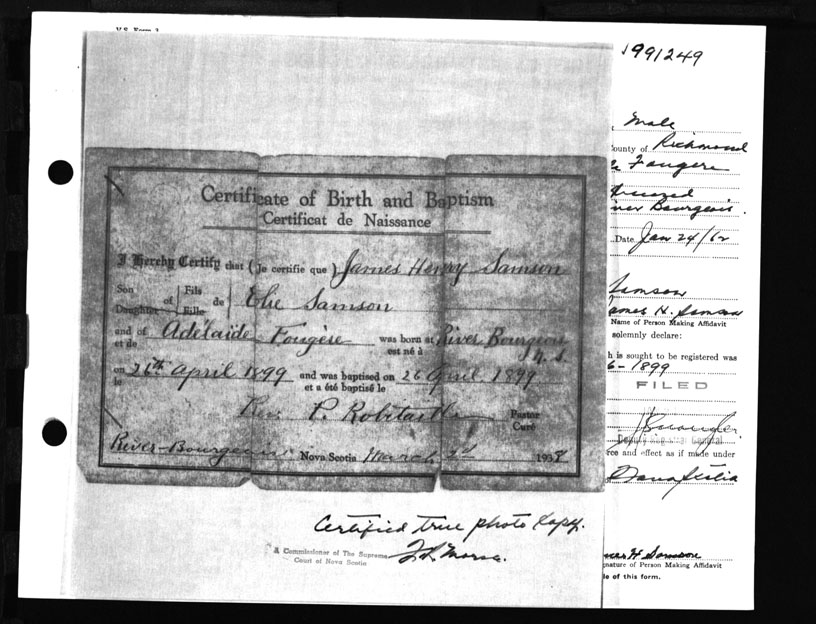 V.S. Form 3
1991249
Male
County of Richmond
Fougere
River Bourgeois
Date Jan 24/62
Samson
James H. Samson
Name of Person Making Affidavit
solemnly declare:
h is sought to be registered was
6-1899
FILED
Deputy Registrar General
rce and effect as if made under
James H Samson
gnature of Person Making Affidavit
le of this form.
Certificate of Birth and Baptism
Certificat de Naissance
I Hereby Certify that (Je certifie que) James Henry Samson
Son Daughter of Fils Fille de Elie Samson
and of et de Adélaide Fougère was born at est né à River Bourgeois
N.S.
on le 26th April 1899 and was baptised on et a été baptisé le 26 April 1899
Rev. P. Robitaille Pastor Curé
River-Bourgeois Nova Scotia March 2d 1938
Certified true photo copy.
A Commissioner of The Supreme
Court of Nova Scotia